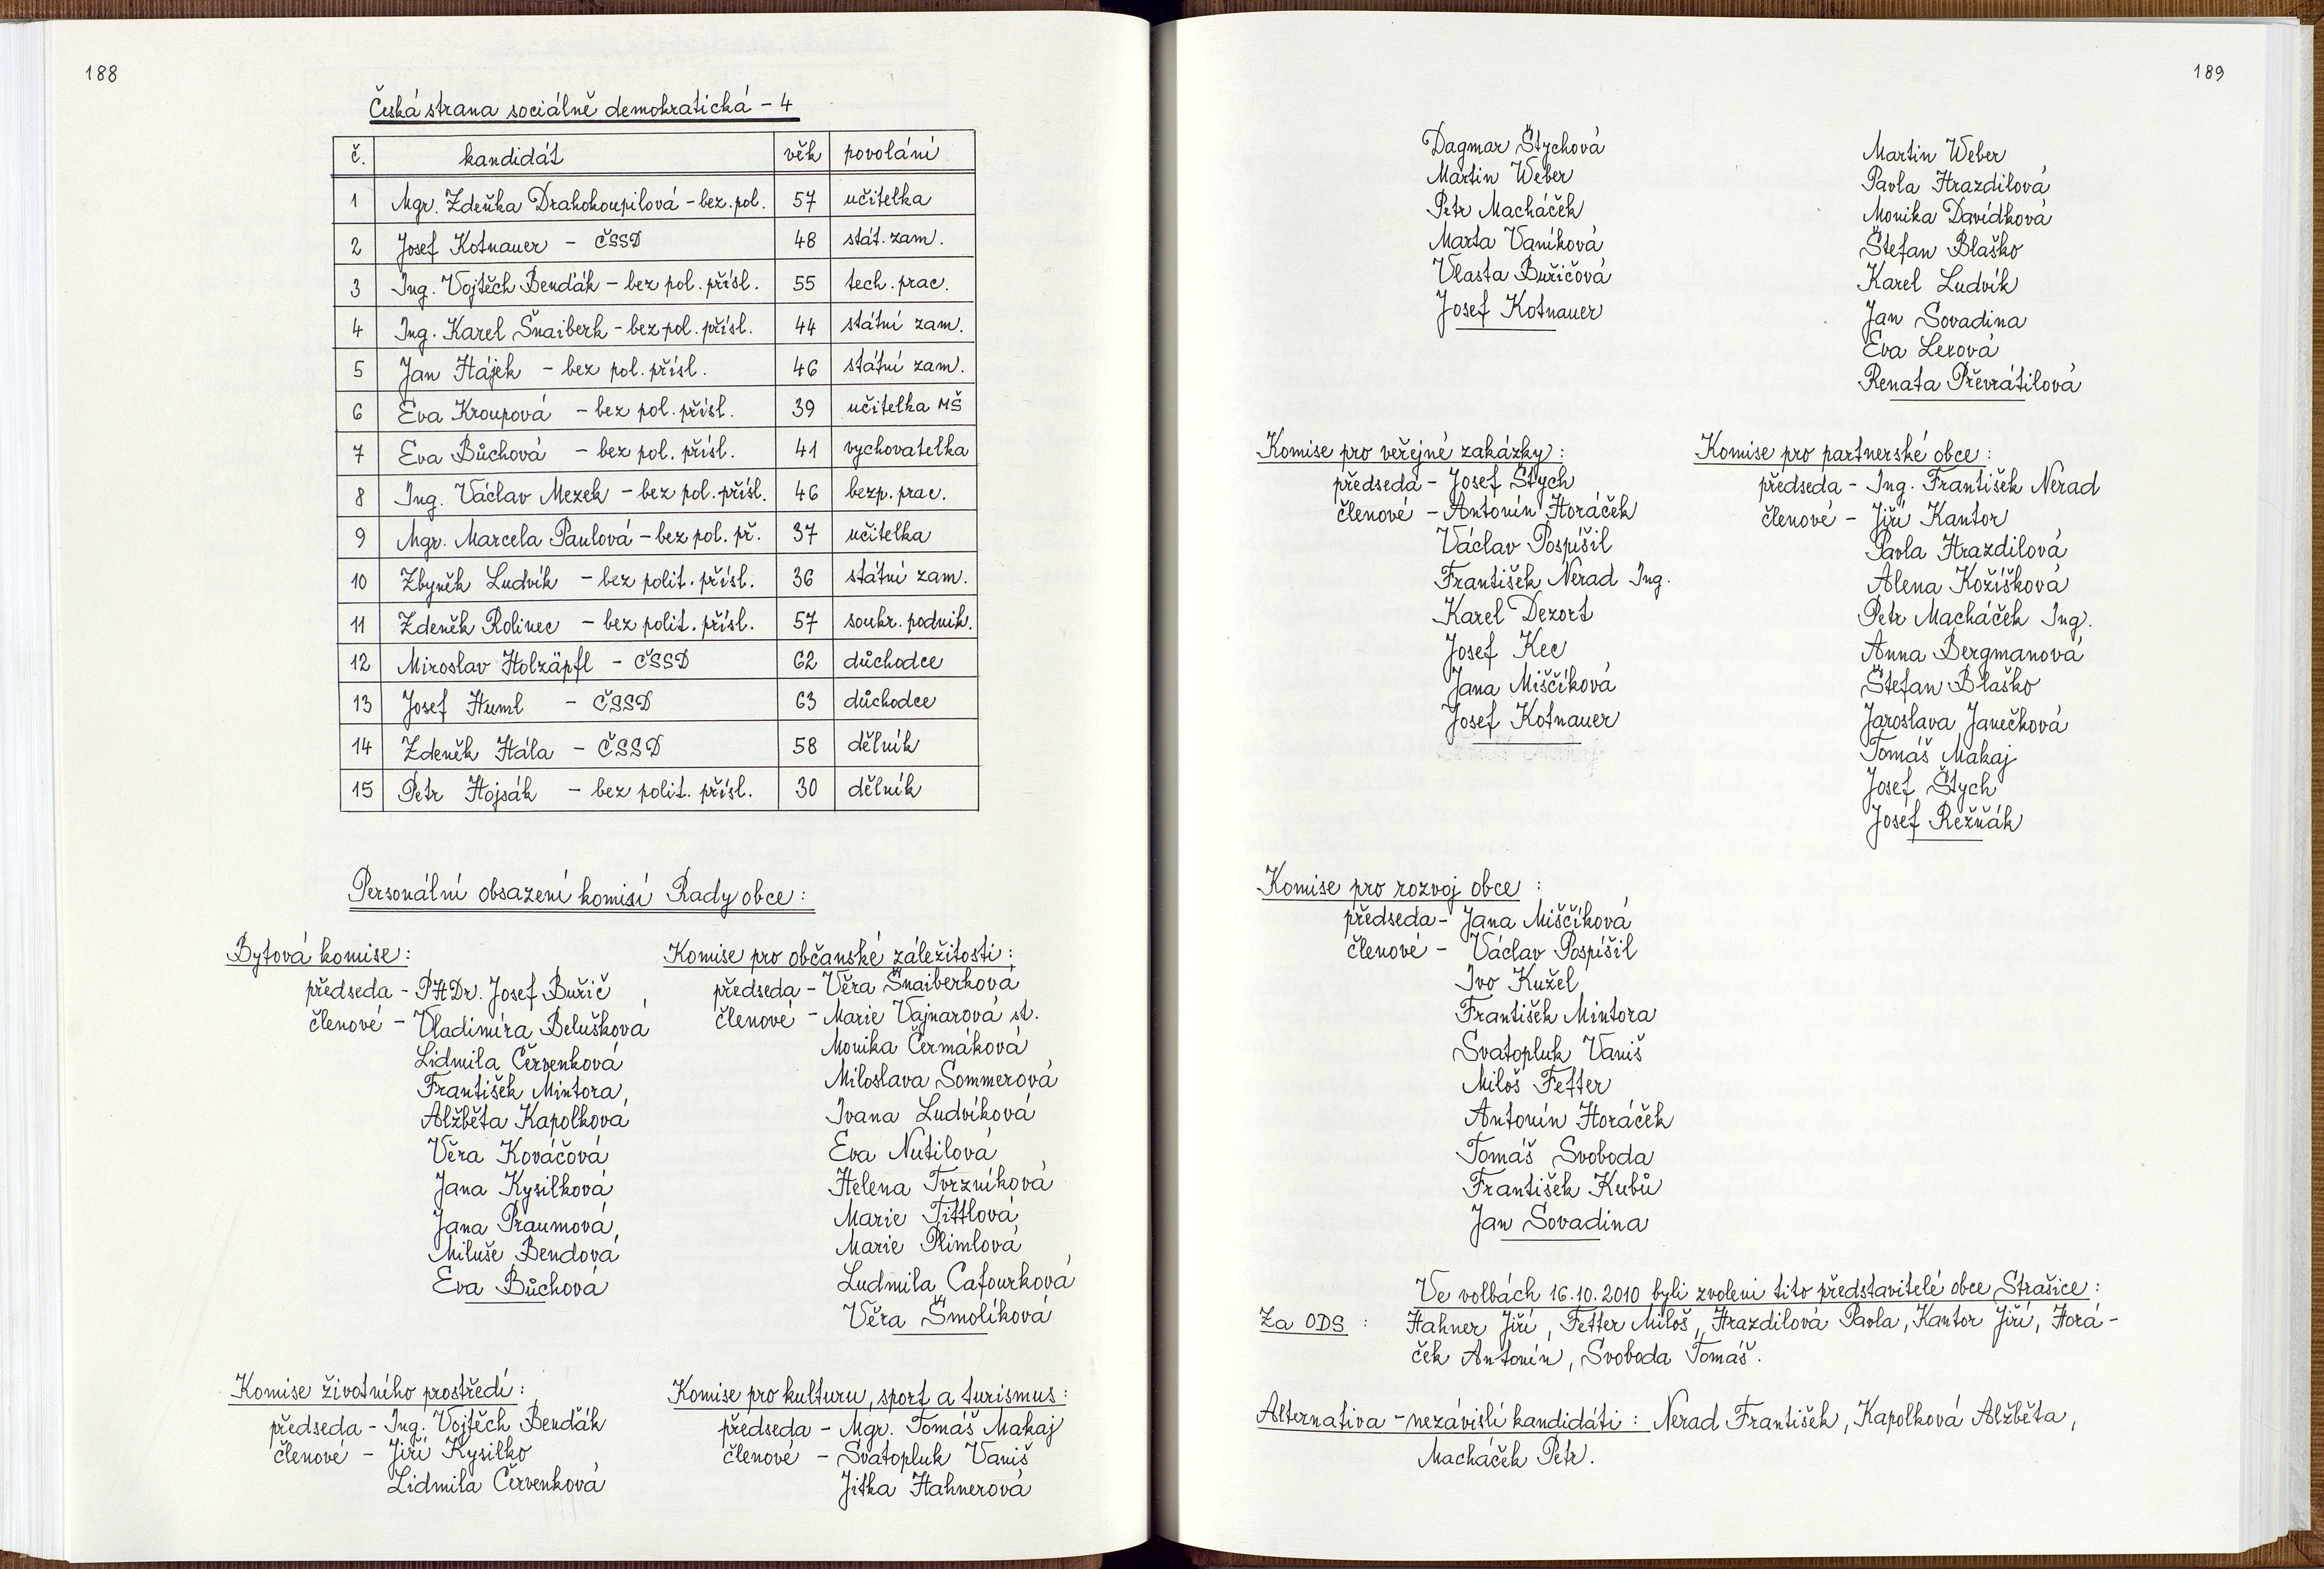 188
Česká strana sociálně demokratická – 4
č. kandidát věk povolání
1 Mgr. Zdeňka Drahokoupilová – bez. pol. 57 učitelka
2 Josef Kotnauer – ČSSD 48 stát. zam.
3 Ing. Vojtěch Bendák – bez pol. přísl. 55 tech. prac.
4 Ing. Karel Šnaiberk – bez pol. přísl. 44 státní zam.
5 Jan Hájek – bez pol. přísl. 46 státní zam.
6 Eva Kroupová – bez pol. přísl. 39 učitelka MŠ
7 Eva Bůchová – bez pol. přísl. 41 vychovatelka
8 Ing. Václav Mezek – bez pol. přísl. 46 bezp. prac.
9 Mgr. Marcela Paulová – bez pol. př. 37 učitelka
10 Zbyněk Ludvík – bez polit. přísl. 36 státní zam.
11 Zdeněk Rolinec – bez polit. přísl. 57 soukr. podnik.
12 Miroslav Holzäpfl – ČSSD 62 důchodce
13 Josef Huml – ČSSD 63 důchodce
14 Zdeněk Hála – ČSSD 58 dělník
15 Petr Hojsák – bez polit. přísl. 30 dělník
Personální obsazení komisí Rady obce:
Bytová komise:
předseda – PHDr. Josef Buřič
členové – Vladimíra Belušková
Lidmila Červenková
František Mintora
Alžběta Kapolková
Věra Kováčová
Jana Kysilková
Jana Praumová
Miluše Bendová
Eva Bůchová
Komise pro občanské záležitosti:
předseda – Věra Šnaiberková
členové – Marie Vajnarová st.
Monika Čermáková
Miloslava Sommerová
Ivana Ludvíková
Eva Nutilová
Helena Tvrzníková
Marie Tittlová
Marie Plimlová
Ludmila Cafourková
Věra Šmolíková
Komise životního prostředí:
předseda – Ing. Vojtěch Bendák
členové – Jiří Kysilko
Lidmila Červenková
Komise pro kulturu, sport a turismus:
předseda – Mgr. Tomáš Makaj
členové – Svatopluk Vaniš
Jitka Hahnerová
189
Dagmar Štychová
Martin Weber
Petr Macháček
Marta Vaníková
Vlasta Buřičová
Josef Kotnauer
Martin Weber
Pavla Hrazdilová
Monika Davídková
Štefan Blaško
Karel Ludvík
Jan Sovadina
Eva Lexová
Renata Převrátilová
Komise pro veřejné zakázky:
předseda – Josef Štych
členové – Antonín Horáček
Václav Pospíšil
František Nerad Ing.
Karel Dezort
Josef Kec
Jana Miščíková
Josef Kotnauer
Komise pro partnerské obce:
předseda – Ing. František Nerad
členové – Jiří Kantor
Pavla Hrazdilová
Alena Kožíšková
Petr Macháček Ing.
Anna Bergmanová
Štefan Blaško
Jaroslava Janečková
Tomáš Makaj
Josef Štych
Josef Režňák
Komise pro rozvoj obce :
předseda – Jana Miščíková
členové – Václav Pospíšil
Ivo Kužel
František Mintora
Svatopluk Vaniš
Miloš Fetter
Antonín Horáček
Tomáš Svoboda
František Kubů
Jan Sovadina
Ve volbách 16.10.2010 byli zvoleni tito představitelé obce Strašice:
Za ODS : Hahner Jiří, Fetter Miloš, Hrazdilová Pavla, Kantor Jiří, Horá-
ček Antonín, Svoboda Tomáš.
Alternativa – nezávislí kandidáti : Nerad František, Kapolková Alžběta,
Macháček Petr.